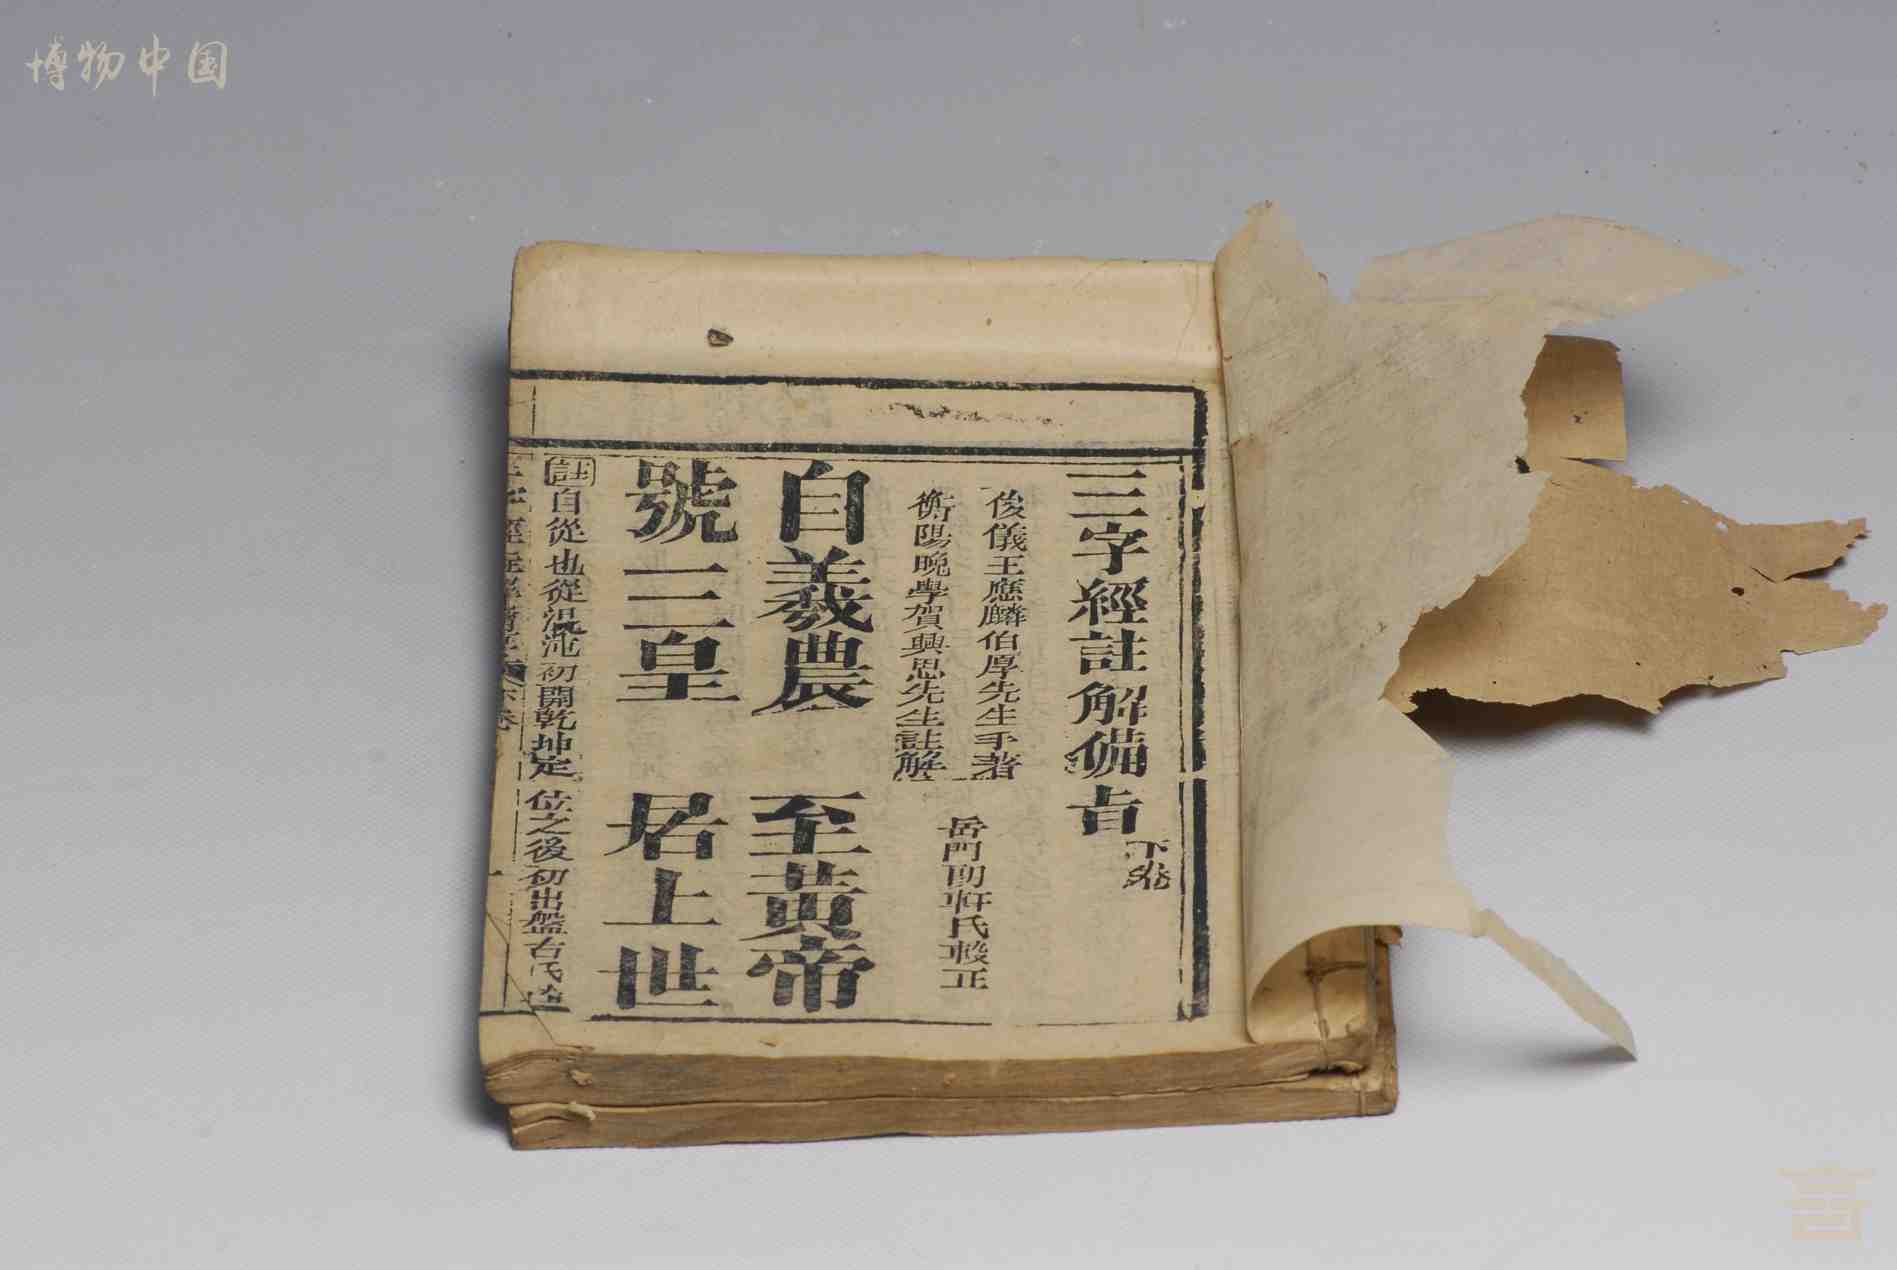 博物中国
三字經註解備旨
下卷
俊儀王應麟伯厚先生手著
衡陽晚學賀興思先生註解
岳門朗軒氏較正
自羲農 至黃帝
號三皇 居上世
註 自從也從混沌初開乾坤定位之後初出盤古氏
三字經註解備旨 下卷